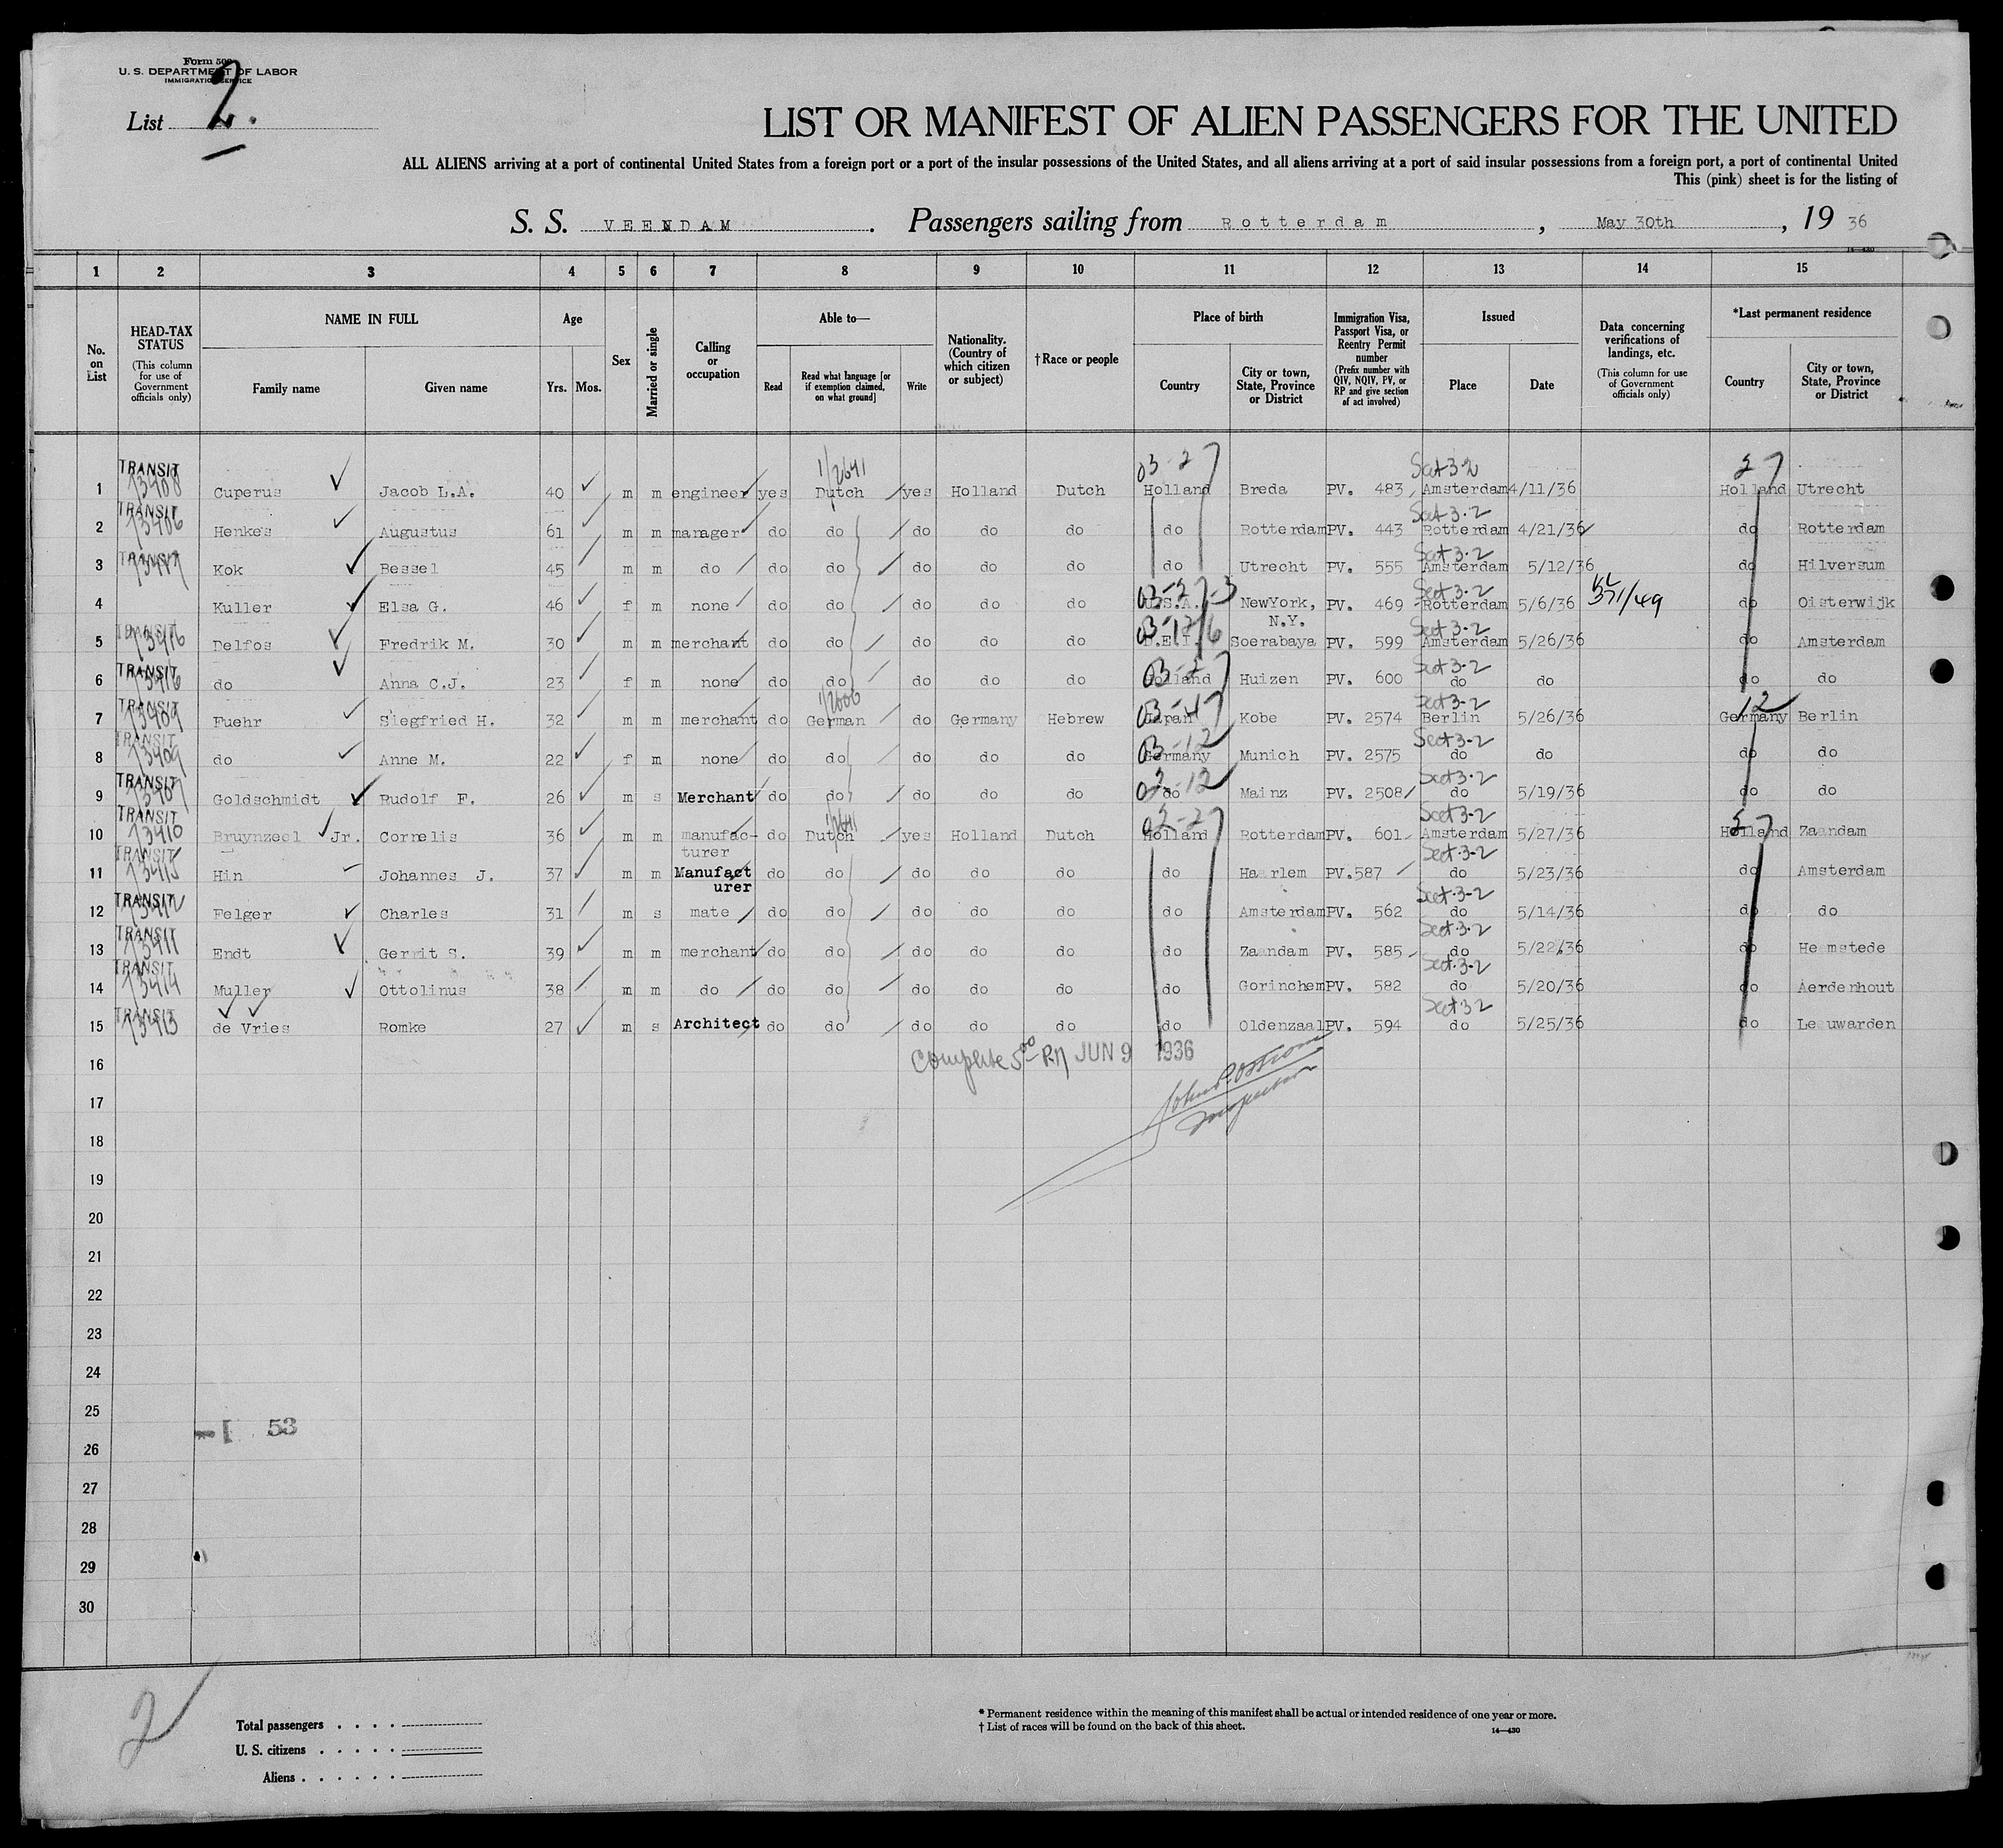 Form 500
U. S. DEPARTMENT OF LABOR
IMMIGRATION SERVICE
List 2.
LIST OR MANIFEST OF ALIEN PASSENGERS FOR THE UNITED
ALL ALIENS arriving at a port of continental United States from a foreign port or a port of the insular possessions of the United States, and all aliens arriving at a port of said insular possessions from a foreign port, a port of continental United
This (pink) sheet is for the listing of
S. S. VEENDAM. Passengers sailing from Rotterdam, May 30th, 19 36
14—430
1 2 3 4 5 6 7 8 9 10 11 12 13 14 15
No. on List
HEAD-TAX STATUS (This column for use of Government officials only)
NAME IN FULL Family name Given name
Age Yrs. Mos.
Sex
Married or single
Calling or occupation
Able to— Read Read what language [or if exemption claimed, on what ground] Write
Nationality. (Country of which citizen or subject)
†Race or people
Place of birth Country City or town, State, Province or District
Immigration Visa, Passport Visa, or Reentry Permit number (Prefix number with QIV, NQIV, PV, or RP and give section of act involved)
Issued Place Date
Data concerning verifications of landings, etc. (This column for use of Government officials only)
*Last permanent residence Country City or town, State, Province or District
TRANSIT 1/2641 03-27 Sect 3-2 27
1 13408 Cuperus Jacob L.A. 40 m m engineer yes Dutch yes Holland Dutch Holland Breda PV. 483 Amsterdam 4/11/36 Holland Utrecht
TRANSIT Sect 3-2
2 13406 Henkes Augustus 61 m m manager do do do do do do Rotterdam PV. 443 Rotterdam 4/21/36 do Rotterdam
TRANSIT Sect 3-2
3 Kok Bessel 45 m m do do do do do do do Utrecht PV. 555 Amsterdam 5/12/36 do Hilversum
Sect 3-2
4 Kuller Elsa G. 46 f m none do do do do do U.S.A. NewYork, N.Y. PV. 469 Rotterdam 5/6/36 371/49 do Oisterwijk
TRANSIT Sect 3-2
5 13416 Delfos Fredrik M. 30 m m merchant do do do do do D.E.I. Soerabaya PV. 599 Amsterdam 5/26/36 do Amsterdam
TRANSIT 03-27 Sect 3-2
6 13416 do Anna C.J. 23 f m none do do do do do Holland Huizen PV. 600 do do do do
TRANSIT 1/2606 Sect 3-2 12
7 13409 Fuehr Siegfried H. 32 m m merchant do German do Germany Hebrew Japan Kobe PV. 2574 Berlin 5/26/36 Germany Berlin
TRANSIT 03-12 Sect 3-2
8 13409 do Anne M. 22 f m none do do do do do Germany Munich PV. 2575 do do do do
TRANSIT 02-12 Sect 3-2
9 13407 Goldschmidt Rudolf F. 26 m s Merchant do do do do do do Mainz PV. 2508 do 5/19/36 do do
TRANSIT 1/2641 02-27 Sect 3-2 27
10 13410 Bruynzeel Jr. Cornelis 36 m m manufacturer do Dutch yes Holland Dutch Holland Rotterdam PV. 601 Amsterdam 5/27/36 Holland Zaandam
TRANSIT Sect 3-2
11 13415 Hin Johannes J. 37 m m Manufacturer do do do do do do Haarlem PV.587 do 5/23/36 do Amsterdam
TRANSIT Sect 3-2
12 13412 Felger Charles 31 m s mate do do do do do do Amsterdam PV. 562 do 5/14/36 do do
TRANSIT Sect 3-2
13 13411 Endt Gerrit S. 39 m m merchant do do do do do do Zaandam PV. 585 do 5/22/36 do Heemstede
TRANSIT Sect 3-2
14 13414 Muller Ottolinus 38 m m do do do do do do do Gorinchem PV. 582 do 5/20/36 do Aerdenhout
TRANSIT Sect 3-2
15 13413 de Vries Romke 27 m s Architect do do do do do do Oldenzaal PV. 594 do 5/25/36 do Leeuwarden
Complete JUN 9 1936
16
Inspector
17
18
19
20
21
22
23
24
25
53
26
27
28
29
30
2
Total passengers
U. S. citizens
Aliens
* Permanent residence within the meaning of this manifest shall be actual or intended residence of one year or more.
† List of races will be found on the back of this sheet.
14—430